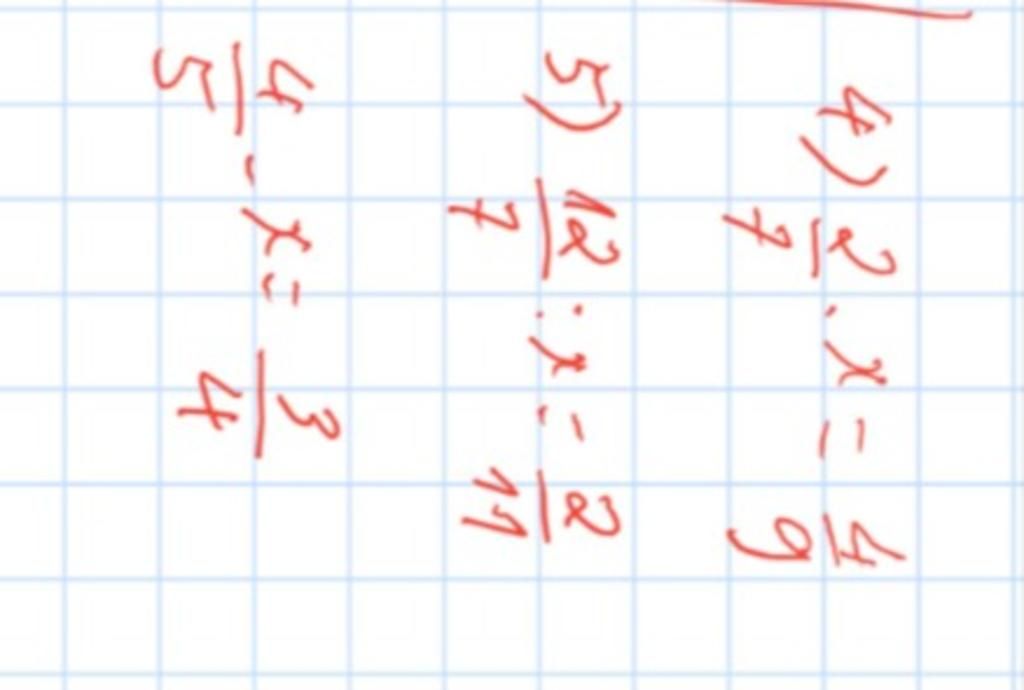 4) 2/7 . x = 4/9
5) 12/7 : x = 2/11
4/5 - x = 3/4